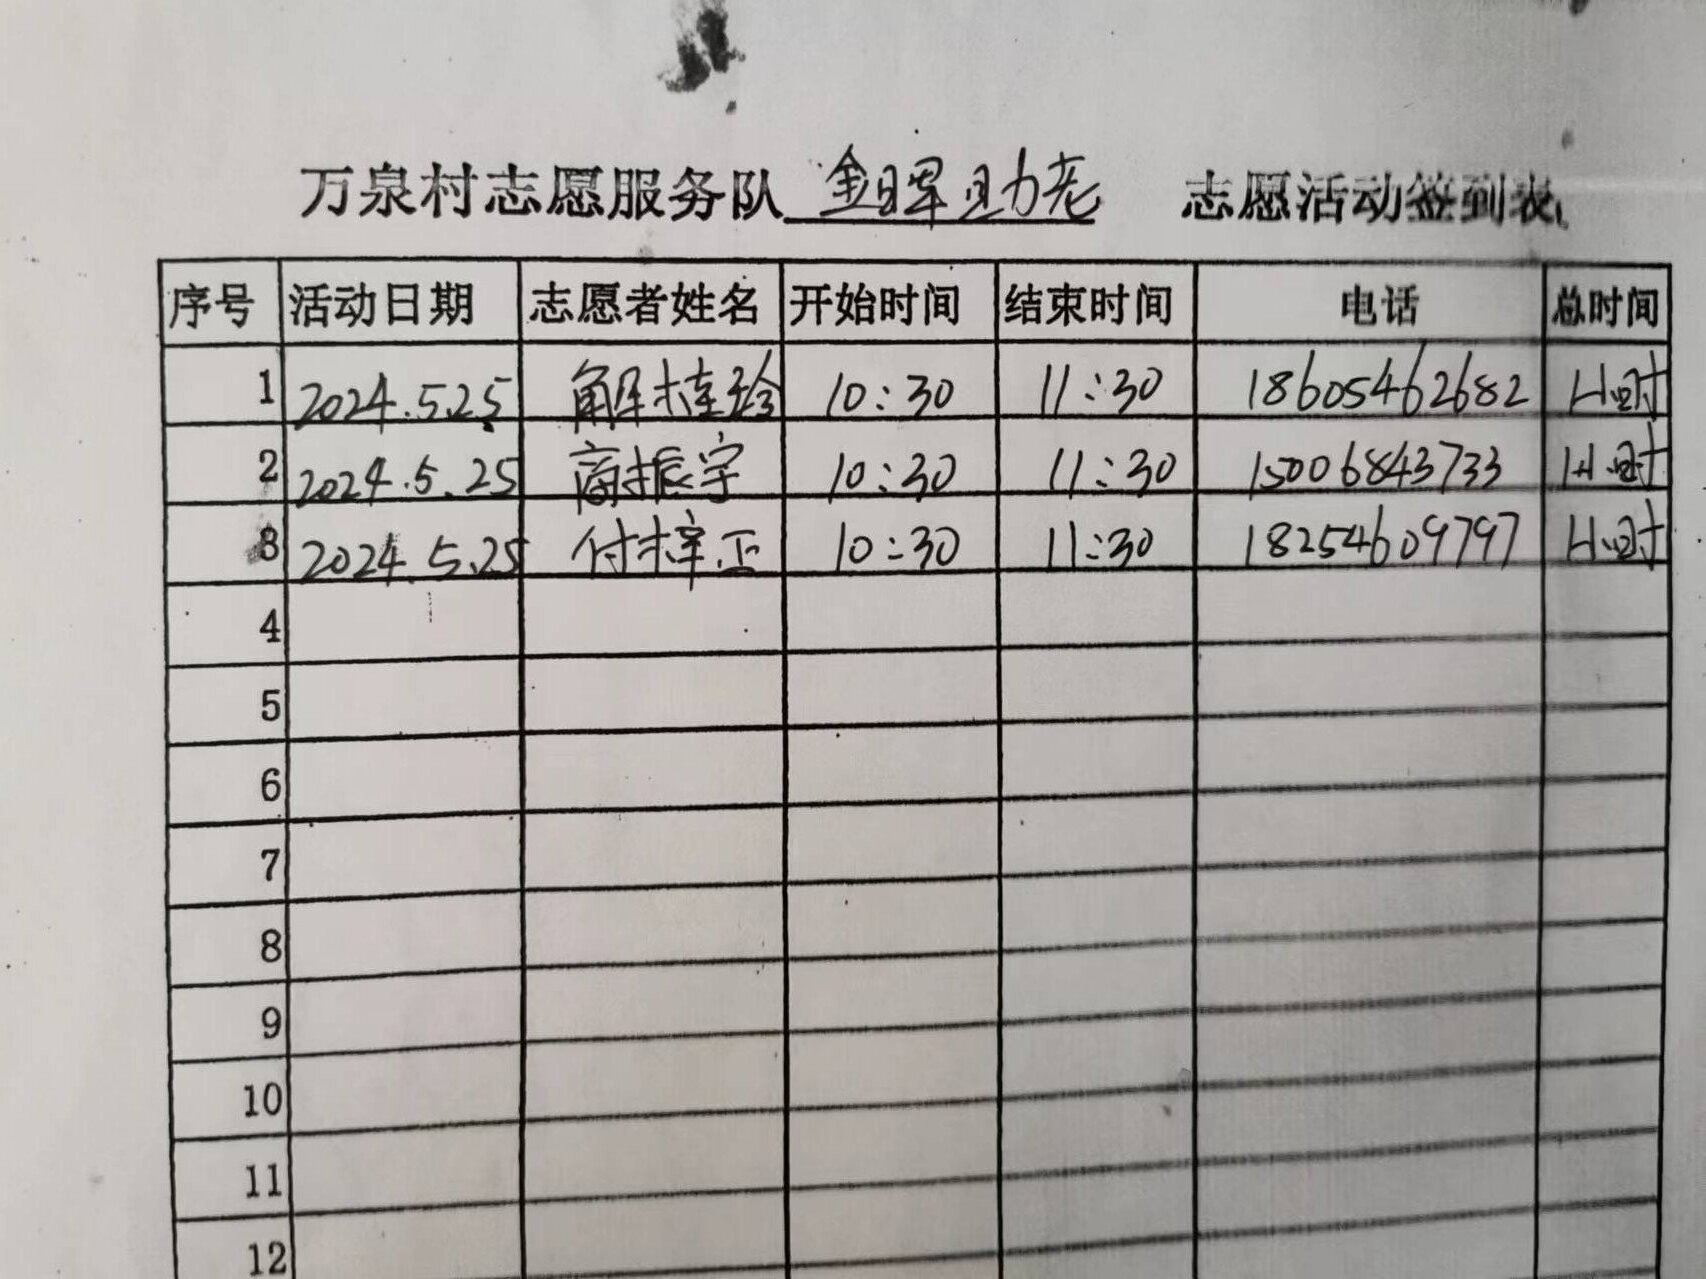 万泉村志愿服务队 金晖助老 志愿活动签到表
序号 活动日期 志愿者姓名 开始时间 结束时间 电话 总时间
1 2024.5.25 解桂玲 10:30 11:30 18605462682 1小时
2 2024.5.25 商振宇 10:30 11:30 15006843733 1小时
3 2024.5.25 付梓正 10:30 11:30 18254609797 1小时
4
5
6
7
8
9
10
11
12